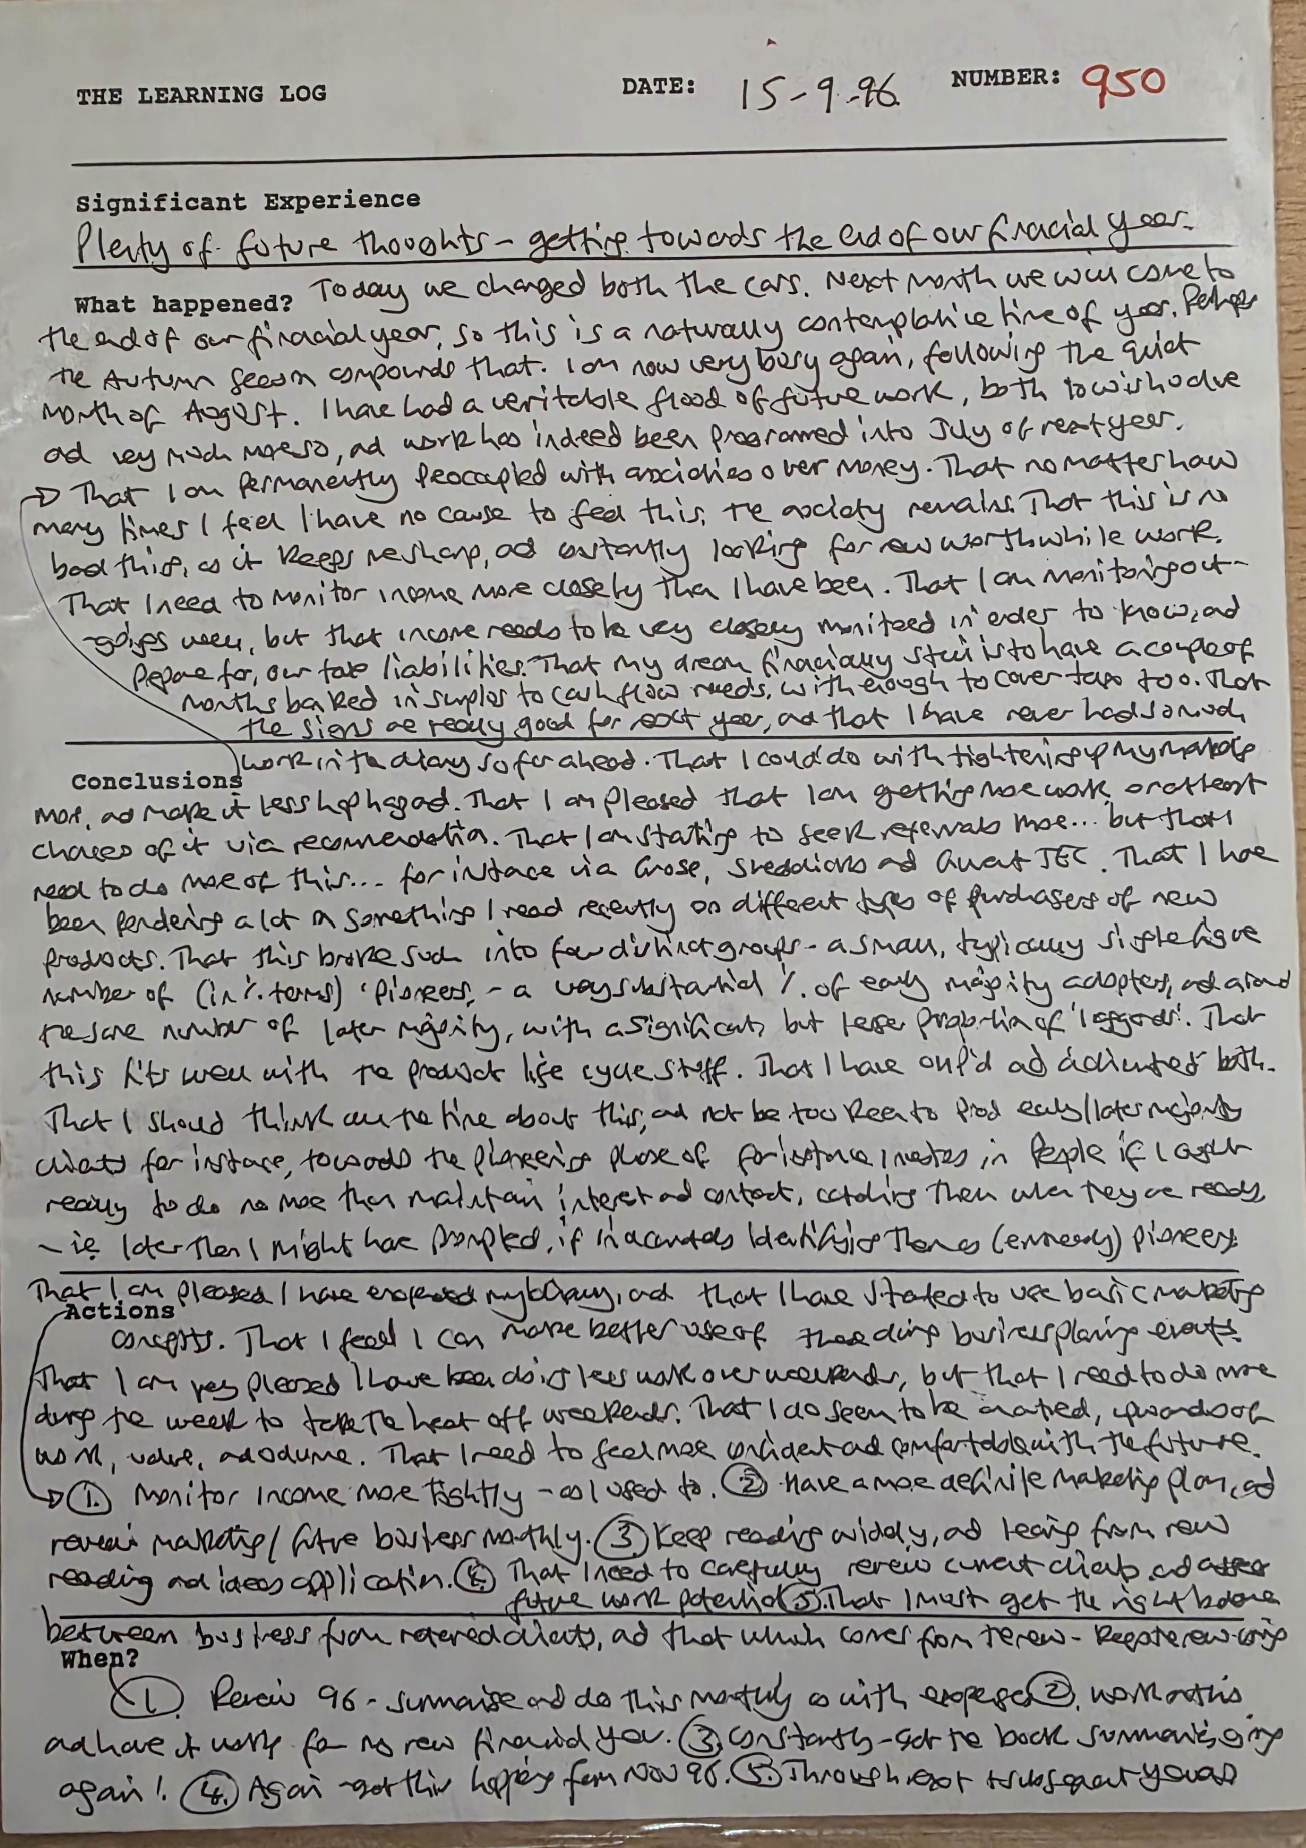 THE LEARNING LOG DATE: 15-9-96. NUMBER: 950
Significant Experience
Plenty of future thoughts - getting towards the end of our financial year.
What happened? Today we changed both the cars. Next month we will come to
the end of our financial year, so this is a naturally contemplative time of year. Perhaps
the Autumn season compounds that. I am now very busy again, following the quiet
month of August. I have had a veritable flood of future work, both to wish
and very much more so, and work has indeed been programmed into July of next year.
→ That I am permanently preoccupied with anxieties over money. That no matter how
many times I feel I have no cause to feel this, the anxiety remains. That this is no
bad thing, as it keeps me sharp, and constantly looking for new worthwhile work.
That I need to monitor income more closely than I have been. That I am monitoring out-
goings well, but that income needs to be very closely monitored in order to know, and
prepare for, our tax liabilities. That my dream financially still is to have a couple of
months banked in surplus to cash flow needs, with enough to cover tax too. That
the signs are really good for next year, and that I have never had so much
work in the diary so far ahead. That I could do with tightening up my marketing
Conclusions
more, and make it less haphazard. That I am pleased that I am getting more work, or at least
chances of it via recommendation. That I am starting to seek referrals more... but that I
need to do more of this... for instance via Grose, and JEC. That I have
been pondering a lot on something I read recently on different types of purchasers of new
products. That this broke such into few distinct groups - a small, typically single figure
number of (in % terms) 'pioneers, - a very substantial % of early majority adopters, and around
the same number of later majority, with a significant, but lesser proportion of 'laggards'. That
this fits well with the product life cycle stuff. That I have and both.
That I should think all the time about this, and not be too keen to prod early/later majority
clients for instance, towards the pioneering phase of for instance Investors in People if I ought
really to do no more than maintain interest and contact, catching them when they are ready,
- ie later than I might have prompted, if inaccurately identifying them as (erroneously) pioneers.
That I am pleased I have my library, and that I have started to use basic marketing
Actions
concepts. That I feel I can make better use of these during business planning events.
That I am very pleased I have been doing less work over weekends, but that I need to do more
during the week to take the heat off weekends. That I do seem to be upwards of
work, value, and volume. That I need to feel more confident and comfortable with the future.
→ 1. Monitor income more tightly - as I used to. 2 Have a more definite marketing plan, and
review marketing/future business monthly. 3 Keep reading widely, and learning from new
reading and ideas application. 4. That I need to carefully review current clients and assess
future work potential 5. That I must get the right balance
between business from clients, and that which comes from the new -
When?
1. Review 96 - summarise and do this monthly as with expenses 2. work on this
and have it for new financial year. 3. Constantly - get the book summarising going
again! 4. Again - get this happening from Nov 96. 5. Through next + subsequent years